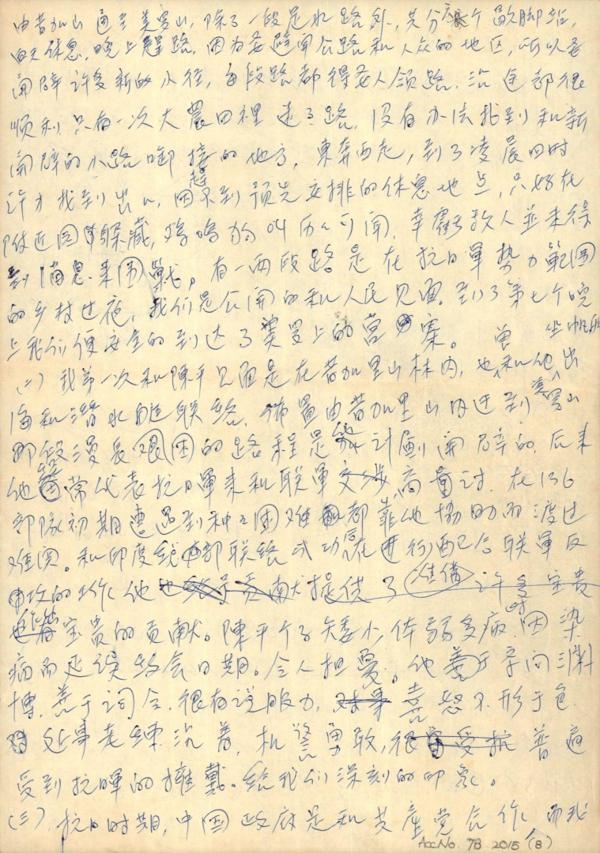 由昔加里山通至美罗山,除了一段是水路外,共分六个歇脚站,
白天休息,晚上赶路。因为要避开公路和人众的地区,所以要
开辟许多新的小径,每段路都得要人领路。沿途都很
顺利,只有一次大农田裡迷了路,没有办法找到和新
开辟的小路啣接的地方,東奔西走,到了凌晨四时
许才找到出口,因赶不到预先安排的休息地点,只好在
附近园中躲藏,鸡鸣狗叫历历可闻,幸亏敌人並未得
到消息来围剿。有一两段路是在抗日軍势力範围
的乡村过夜,我们是公開的和人民见面。到了第七个晚
上我们便安全的到达了美罗上的营寨。
(二)我第一次和陳平见面是在昔加里山林内,也曾和他坐帆船出
海和潜水艇联络,佈置由昔加里山内进到美罗山
那段漫長艰困的路程是他计劃開辟的,后来
他常常代表抗日軍来和联軍交涉,商量讨,在136
部队初期遭遇到种种困难都靠他協助而渡过
难関。和印度総部联络成功在进行配合联軍反
攻的工作,他提供了準備许多宝贵
宝贵的贡献。陳平个子矮小,体弱多病,时因染
病而延误约会日期。令人担憂。他善于辛间三斟
博,善于词令,很有说服力,喜怒不形于色
处事老练沉着,机警勇敢,很受 普遍
受到抗軍的擁戴。给我们深刻的印象。
(三)抗日时期,中国政府是和共產党合作,而我
Acc No. 78 2015 (8)